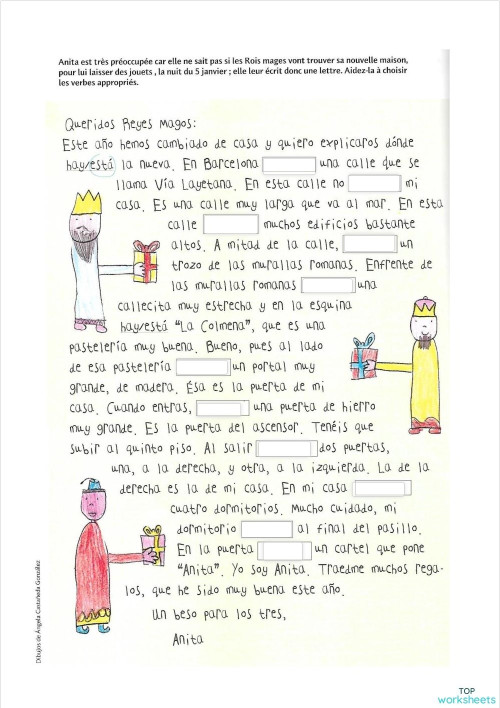 Anita est très préoccupée car elle ne sait pas si les Rois mages vont trouver sa nouvelle maison,
pour lui laisser des jouets , la nuit du 5 janvier ; elle leur écrit donc une lettre. Aidez-la à choisir
les verbes appropriés.
Queridos Reyes Magos:
Este año hemos cambiado de casa y quiero explicaros dónde
hay/está la nueva. En Barcelona una calle que se
llama Vía Layetana. En esta calle no mi
casa. Es una calle muy larga que va al mar. En esta
calle muchos edificios bastante
altos. A mitad de la calle, un
trozo de las murallas romanas. Enfrente de
las murallas romanas una
callecita muy estrecha y en la esquina
hay/está "La Colmena", que es una
pastelería muy buena. Bueno, pues al lado
de esa pastelería un portal muy
grande, de madera. Ésa es la puerta de mi
casa. Cuando entras, una puerta de hierro
muy grande. Es la puerta del ascensor. Tenéis que
subir al quinto piso. Al salir dos puertas,
una, a la derecha, y otra, a la izquierda. La de la
derecha es la de mi casa. En mi casa
cuatro dormitorios. Mucho cuidado, mi
dormitorio al final del pasillo.
En la puerta un cartel que pone
"Anita". Yo soy Anita. Traedme muchos rega-
los, que he sido muy buena este año.
Un beso para los tres,
Anita
Dibujos de Ángela Castañeda González
TOP
worksheets